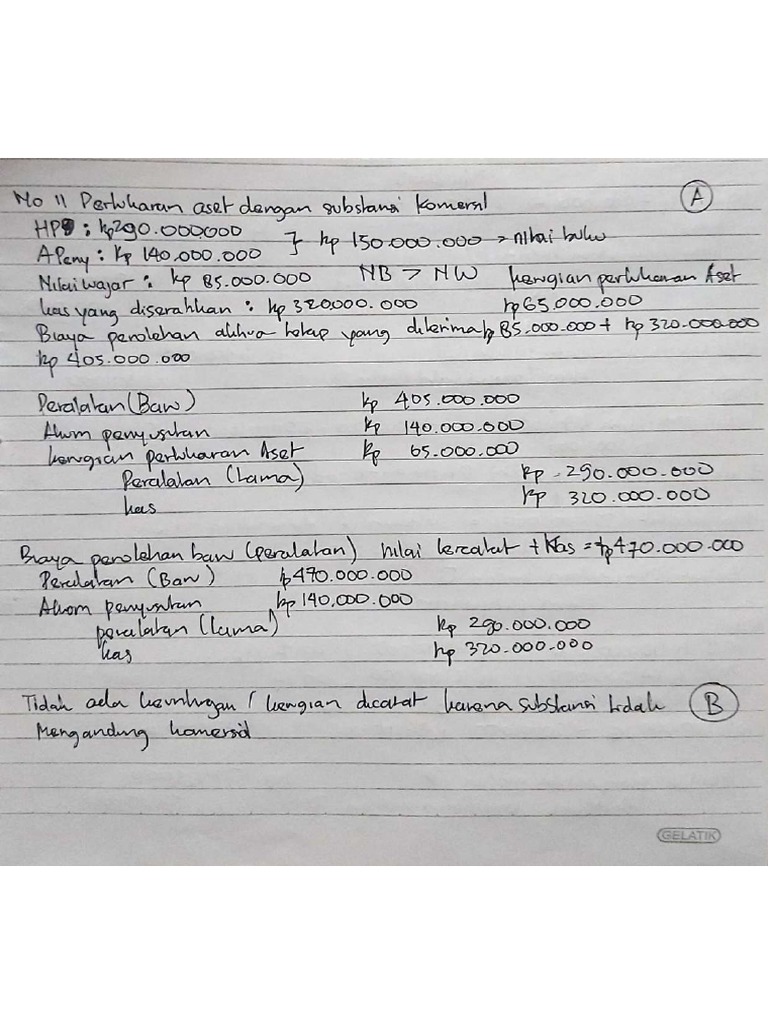 No 11 Pertukaran aset dengan substansi komersil
A
HP : Rp 290.000.000
A Peny : Rp 140.000.000 } Rp 150.000.000 = nilai buku
Nilai wajar : Rp 85.000.000 NB > NW kerugian pertukaran Aset
kas yang diserahkan : Rp 320.000.000 Rp 65.000.000
Biaya perolehan aktiva tetap yang diterima Rp 85.000.000 + Rp 320.000.000
Rp 405.000.000
Peralatan (Baru) Rp 405.000.000
Akum penyusutan Rp 140.000.000
kerugian pertukaran Aset Rp 65.000.000
Peralatan (Lama) Rp 290.000.000
kas Rp 320.000.000
Biaya perolehan baru (peralatan) nilai tercatat + Kas = Rp 470.000.000
Peralatan (Baru) Rp 470.000.000
Akum penyusutan Rp 140.000.000
peralatan (lama) Rp 290.000.000
kas Rp 320.000.000
Tidak ada keuntungan / kerugian dicatat karena substansi tidak
B
Mengandung komersil
GELATIK